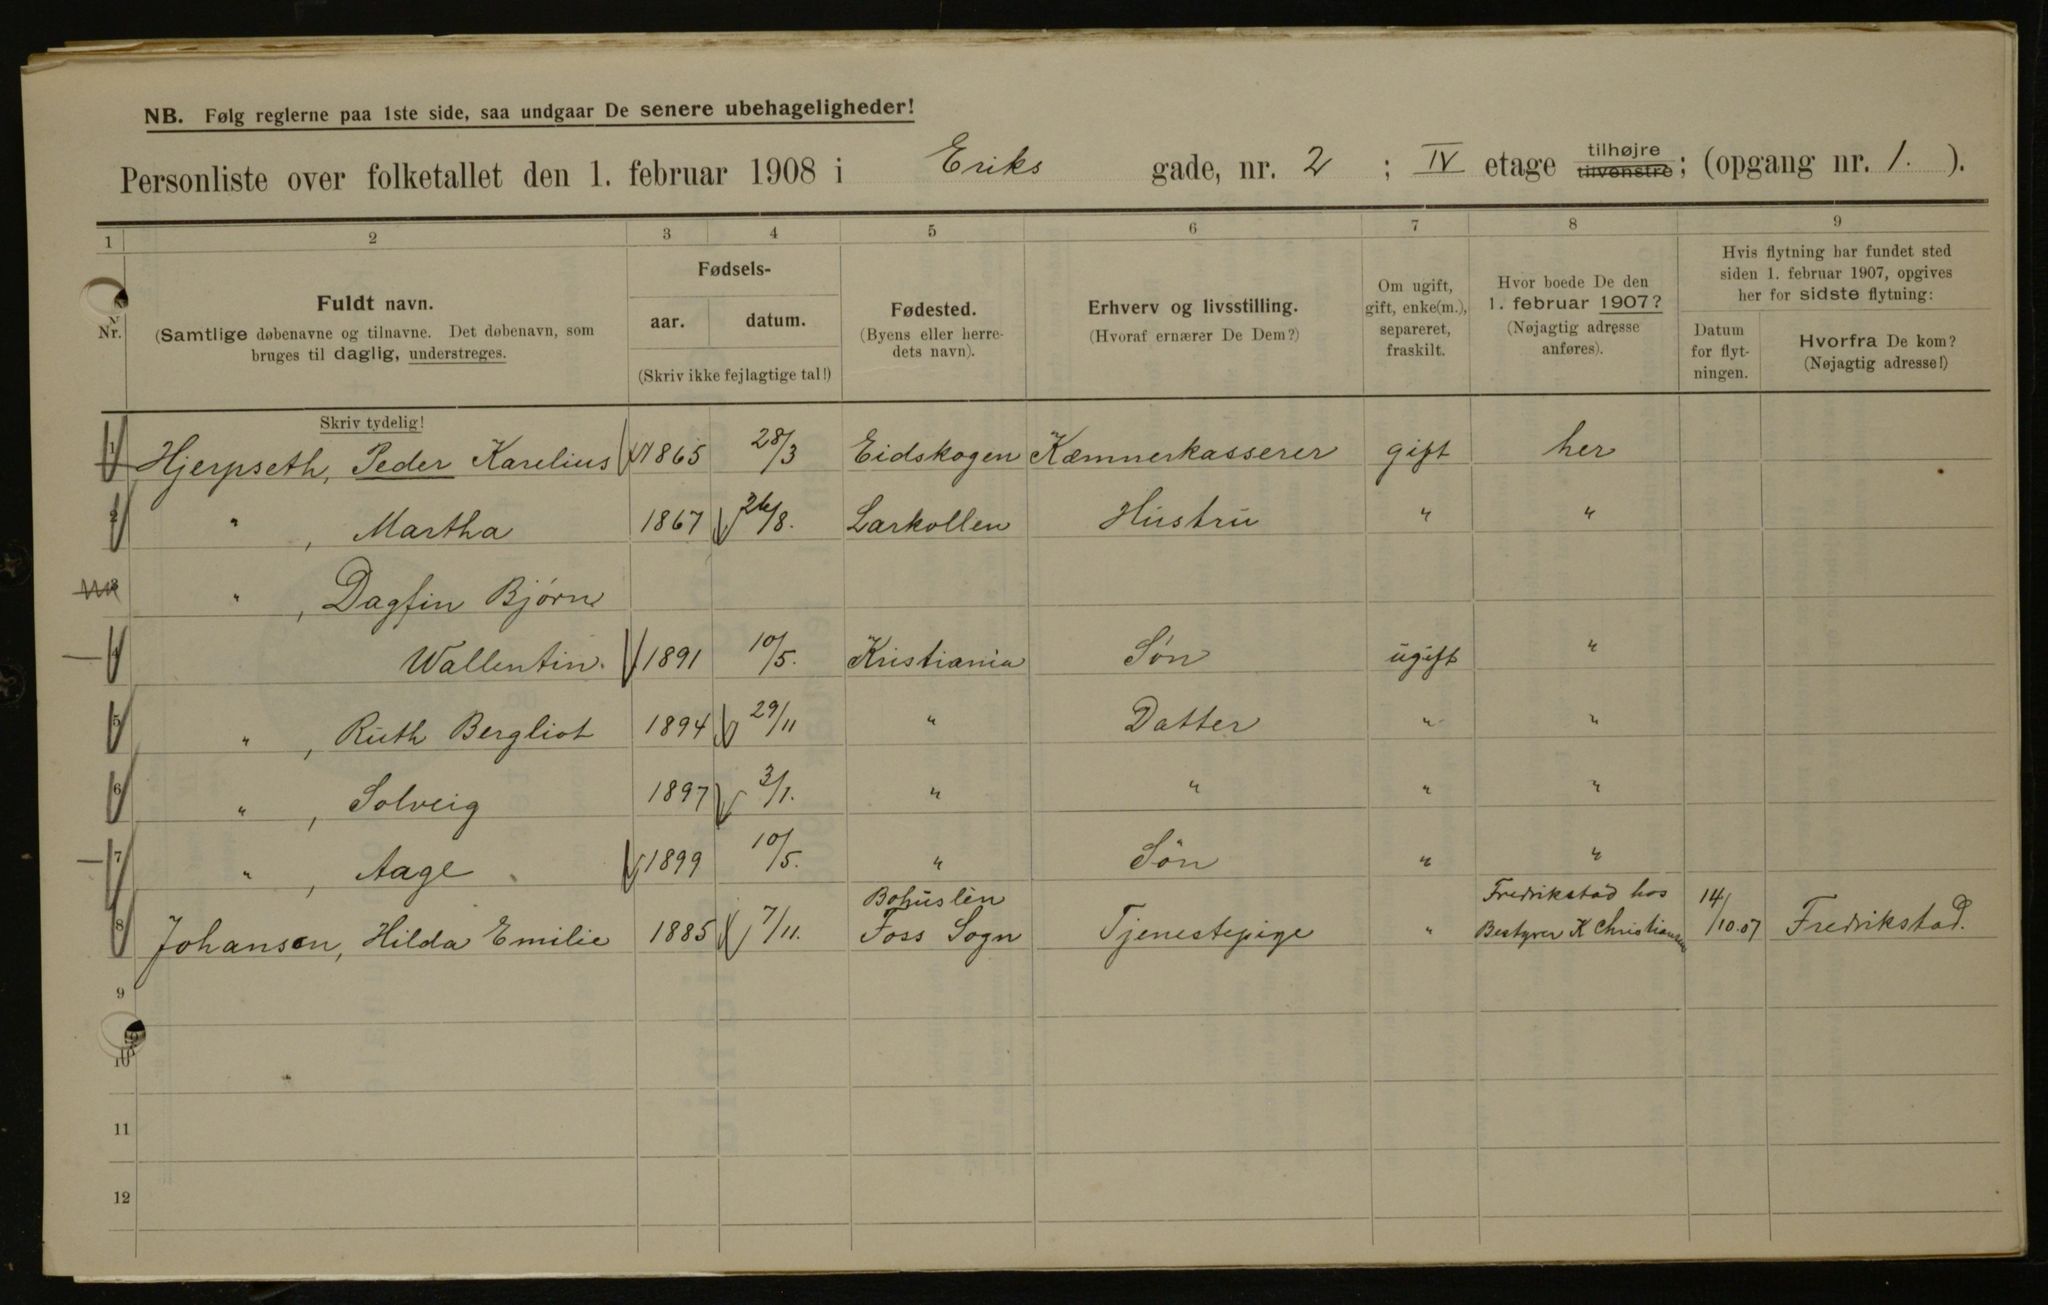 NB. Følg reglerne paa 1ste side, saa undgaar De senere ubehageligheder!
Personliste over folketallet den 1. februar 1908 i Eriks gade, nr. 2 ; IV etage tilhøjre tilvenstre; (opgang nr. 1. ).
1 2 3 4 5 6 7 8 9
Nr.
Fuldt navn.
(Samtlige døbenavne og tilnavne. Det døbenavn, som
bruges til daglig, understreges.
Fødsels-
aar. datum.
(Skriv ikke fejlagtige tal!)
Fødested.
(Byens eller herre-
dets navn).
Erhverv og livsstilling.
(Hvoraf ernærer De Dem?)
Om ugift,
gift, enke(m.),
separeret,
fraskilt.
Hvor boede De den
1. februar 1907?
(Nøjagtig adresse
anføres).
Hvis flytning har fundet sted
siden 1. februar 1907, opgives
her for sidste flytning:
Datum
for flyt-
ningen.
Hvorfra De kom?
(Nøjagtig adresse!)
Skriv tydelig!
1 Hjerpseth, Peder Karelius 1865 28/3 Eidskogen Kæmnerkasserer gift her
2 " , Martha 1867 26/8. Larkollen Hustru " "
3 " , Dagfin Bjørn
4 Wallentin. 1891 10/5. Kristiania Søn ugift "
5 " , Ruth Bergliot 1894 29/11 " Datter " "
6 " , Solveig 1897 3/1. " " " "
7 " , Aage 1899 10/5. " Søn " "
8 Johansen, Hilda Emilie 1885 7/11. Bohuslen Foss Sogn Tjenestepige " Fredrikstad hos Bestyrer K Christiansen 14/10.07 Fredrikstad.
9
10
11
12